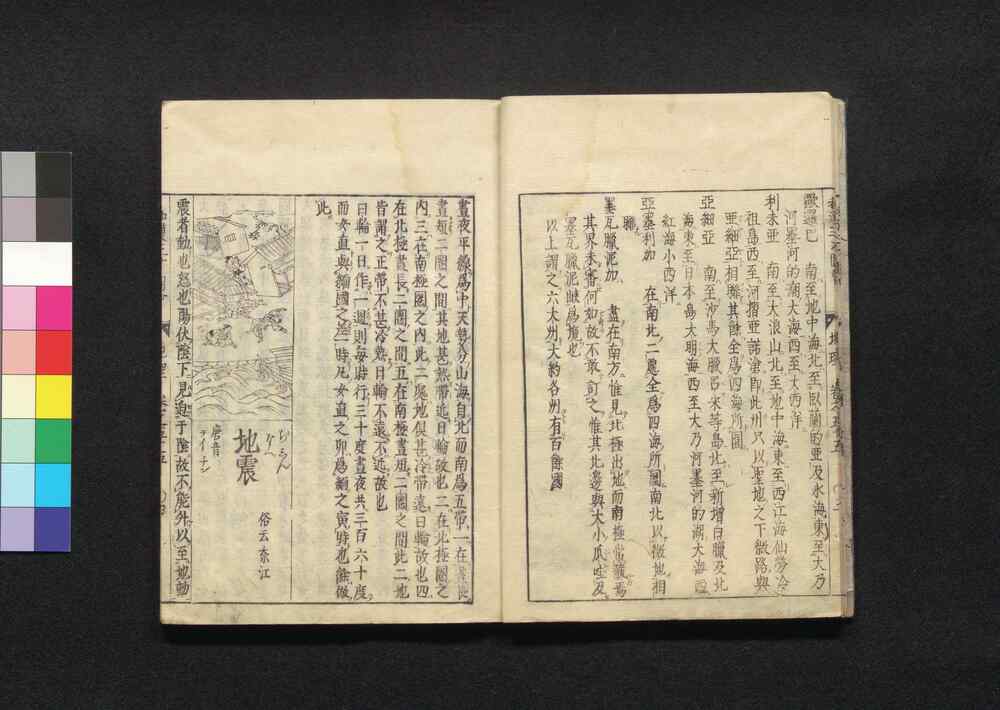 歐邏巴　南至地中海北至臥蘭的亞及氷海東至大乃
河墨河的湖大海西至大西洋
利未亞　南至大浪山北至地中海東至西江海仙勞冷
祖島西至河摺亞諾滄即此州只以聖地之下微路與
亞細亞相聯其餘全爲四海所圍
亞細亞　南至沙馬大臘呂宋等島北至新增白臘及北
海東至日本島大明海西至大乃河墨河的湖大海
紅海小西洋
亞墨利加　在南北二處全爲四海所圍南北以微地相
聯
墨瓦臘泥加　盡在南方惟見北極出地而南極常藏焉
其界未審何如故不敢訂之惟其北邊與大小瓜哇及
墨瓦臘泥峽爲境也
以上謂之六大州大約各州有百餘國
晝夜平線爲中天勢分山海自北而南爲五帶一在晝長
晝短二圈之間其地甚熱帶近日輪故也二在北極圈之
内三在南極圈之内此二處地俱甚冷帶遠日輪故也四
在北極晝長二圈之間五在南極晝短二圈之間此二地
皆謂之正帶不甚冷熱日輪不遠不近故也
日輪一日作一週則毎時行三十度晝夜共三百六十度
而女直與緬國之差一時凡女直之卯爲緬之寅時也餘倣
此
ぢしん
地震
唐音
俗云奈江
震者動也怒也陽伏陰下見迫于陰故不能升以至地動